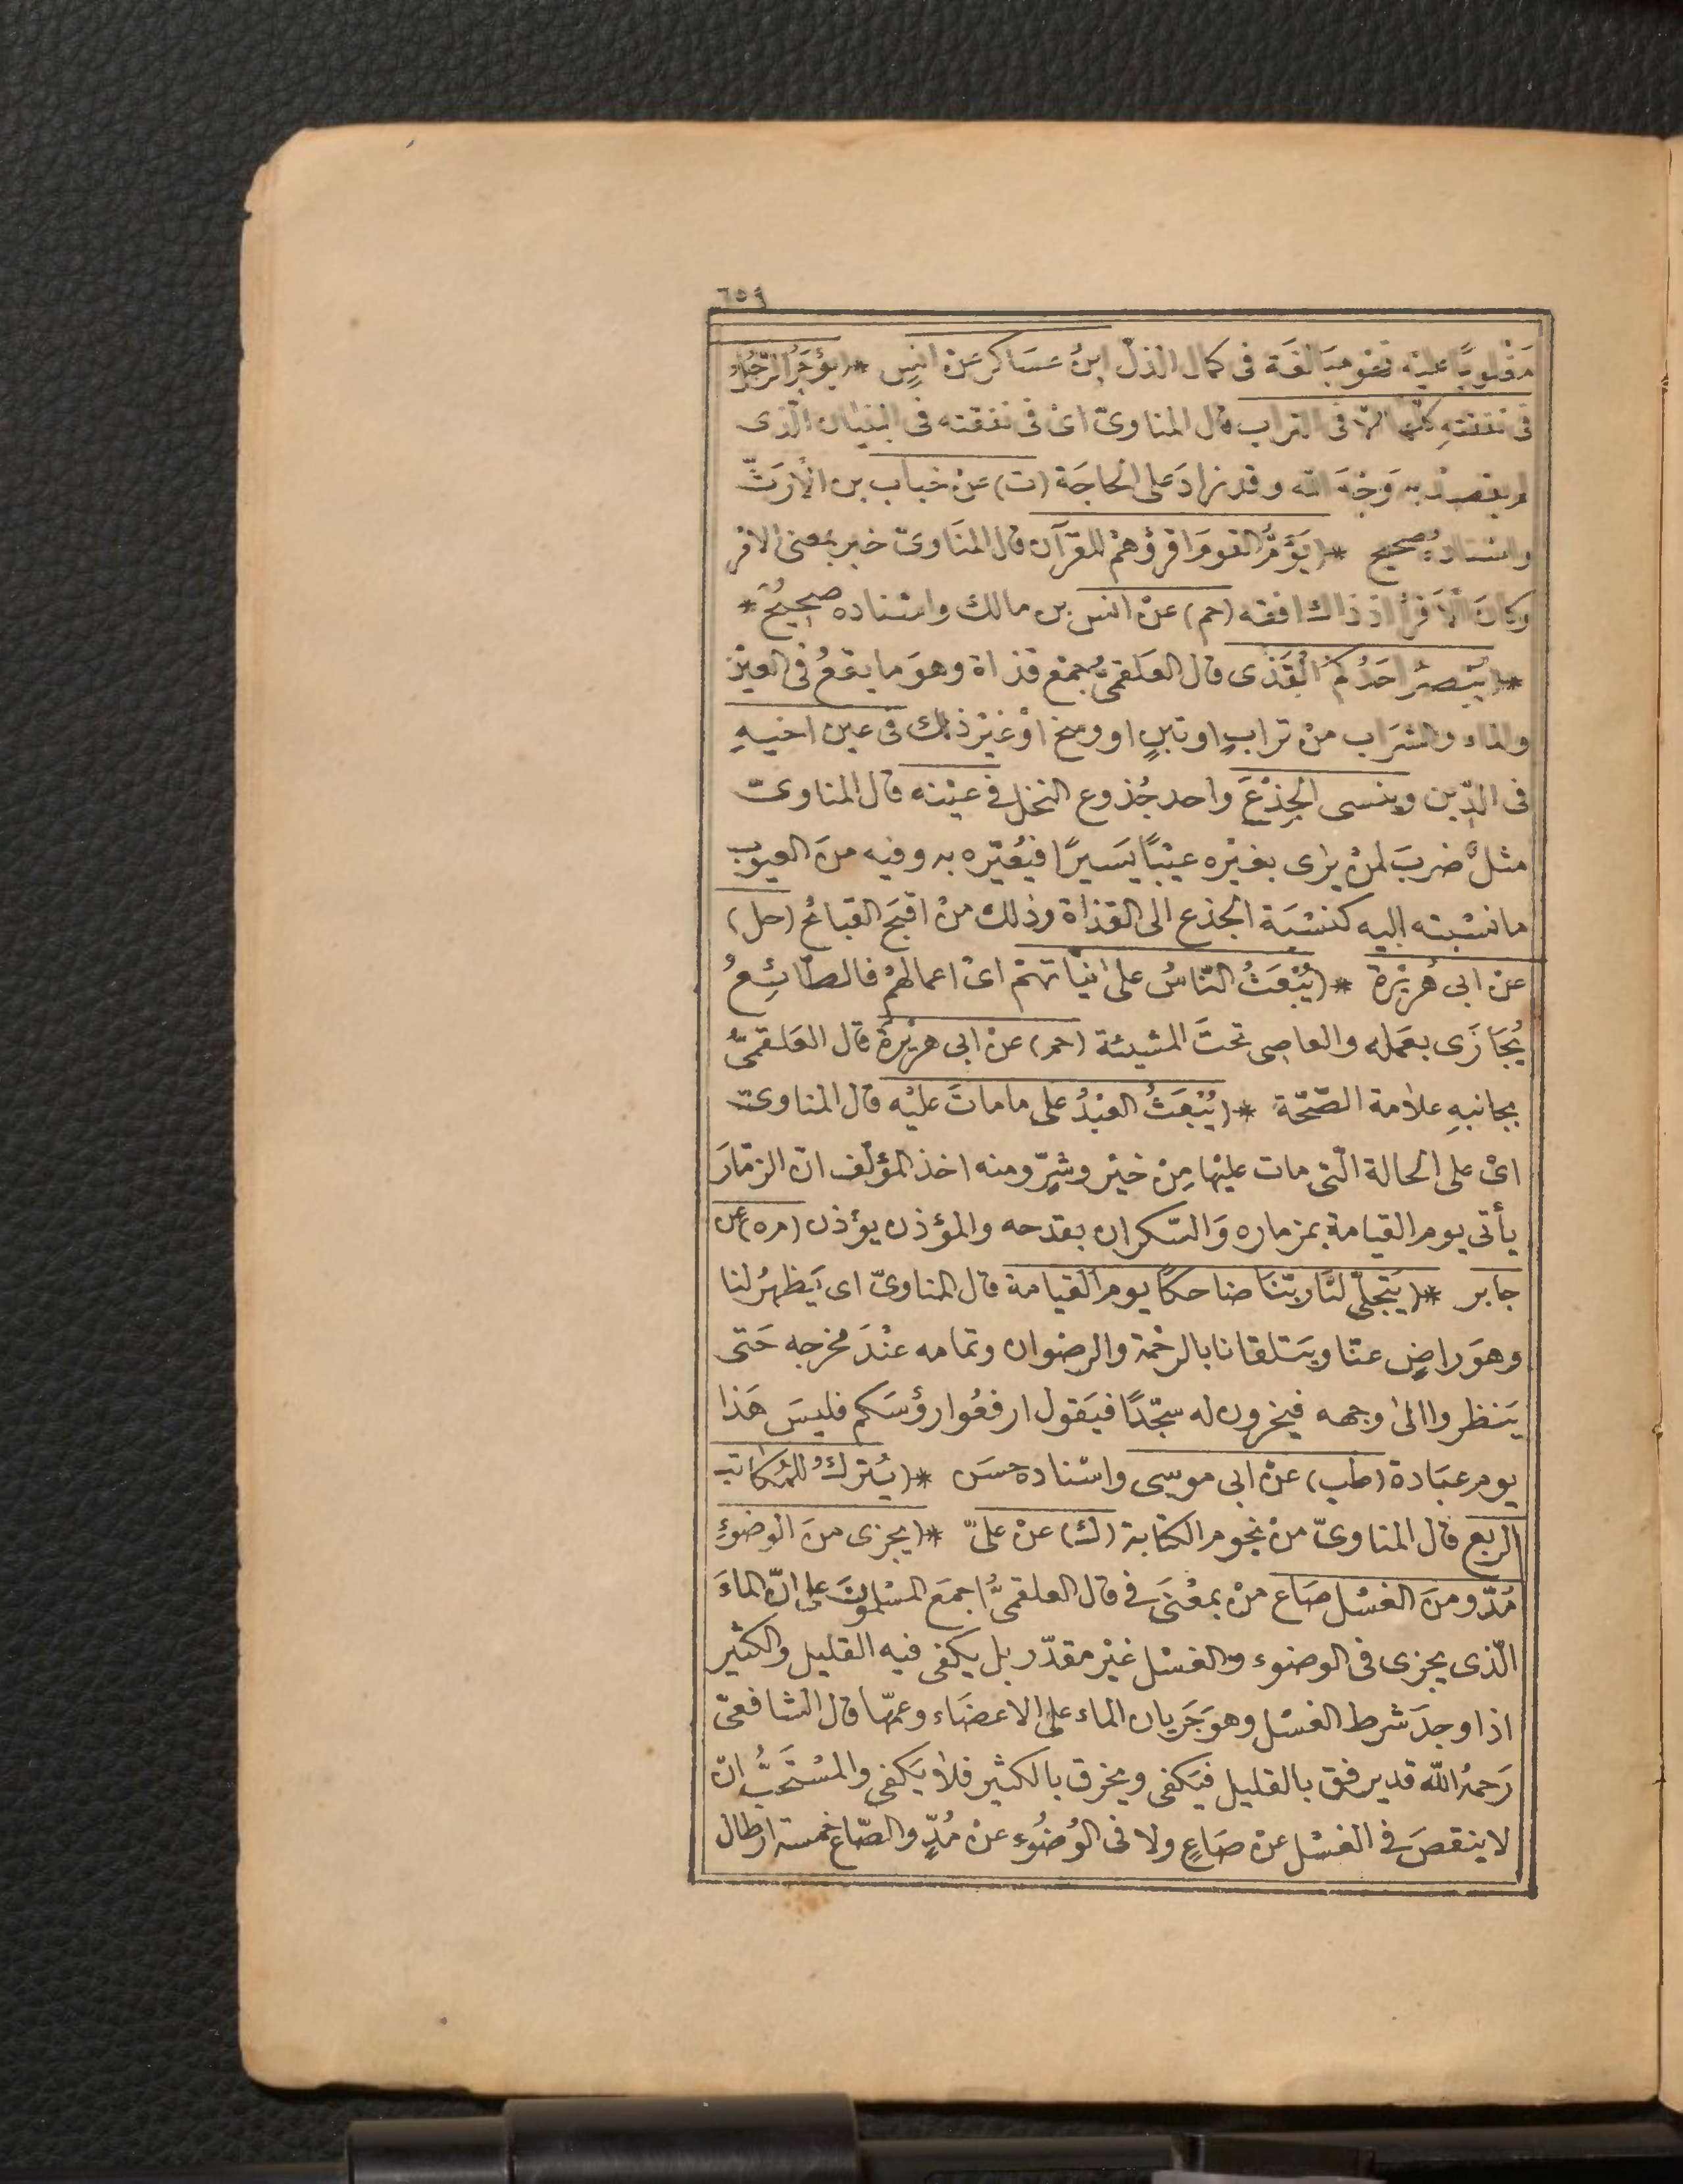 ٦٥٩
مَغْلوبًا عليْه فهو مبَالغَة فى كمال الذلّ ابنُ عسَاكر عنْ انسٍ * (يُؤجَرُ الرّجُلُ
فى نفقتهِ كلّها الّا فى التراب قال المناوىّ اىْ فى نفقته فى البنيان الّذى
لم يقصدْ به وَجْهَ الله وقد زادَ على الحاجَة (ت) عنْ خباب بن الأرَتّ
واسْناده صحيح * (يَؤمُّ القومَ اقرؤهمْ للقرآن قال المنَاوىّ خبر بمعنى الامْر
وكانَ الأَقرأ اذ ذاك افقه (حم) عنْ انس بن مالك واسْناده صحِيحٌ *
* (يُبْصرُ احَدُكمُ القَذَى قال العَلقمىّ جمْع قذاة وهوَ ما يقعُ فى العيْن
والماء والشرَاب منْ ترابٍ او تبنٍ او وسَخ اوْ غيْر ذلك فى عين اخيهِ
فى الدّين وينسى الجِذْعَ واحد جُذوع النخل فى عيْنه قال المناوىّ
مثلٌ ضربَ لمنْ يرٰى بغيْره عيْبًا يَسيرًا فيُعيّره به وفيه منَ العيوب
ما نسْبته اليه كنسْبَة الجذع الى القذاة وذلك منْ اقبَح القبائح (حل)
عنْ ابى هُريْرة * (يُبْعَثُ النّاسُ على نيّاتهمْ اىْ اعمالهمْ فالطّائِعُ
يُجَازَى بعَمله والعاصى تحتَ المشيئة (حم) عنْ ابى هريْرةَ قال العَلقمىُّ
بجانبهِ علامة الصّحّة * (يُبْعَثُ العبْدُ على ما ماتَ عليْه قال المناوىّ
اىْ على الحالة الّتى مات عليْها مِنْ خيْر وشرٍّ ومنه اخذ المؤلّف انّ الزمّارَ
يأتى يوم القيامة بمزماره وَالسّكران بقدحه والمؤذن يؤذن (م ه) عن
جابر * (يَتجلّى لنَا ربّنَا ضاحكًا يوم القيامة قال المناوىّ اى يَظهرُ لنا
وهوَ راضٍ عنّا ويَتلقانا بالرحْمة والرضوان وتمامه عنْدَ مخرجه حَتى
يَنظروا الىٰ وجهه فيخرون له سجّدًا فيَقول ارفعُوا رؤسَكم فليسَ هَذا
يوم عبَادة (طب) عنْ ابى موسى واسْناده حسَن * (يُتركُ للمُكاتب
الربع قال المناوىّ منْ نجوم الكتابة (ك) عنْ علىّ * (يجزى منَ الوضوءِ
مُدّ ومنَ الغسْل صَاع منْ بمعْنَى فى قال العلقمىُّ اجمَع المسْلمونَ على انّ الماءَ
الّذى يجزى فى الوضوء والغسْل غيْر مقدّر بل يكفى فيه القليل والكثير
اذا وجدَ شرط الغسْل وهوَ جَريان الماء على الاعضَاء وعمّها قال الشافعىّ
رَحمهُ اللّه قد يرفق بالقليل فيَكفى ويخرق بالكثير فلا يَكفى والمسْتَحبُّ انْ
لا ينقصَ فى الغسْل عنْ صَاعٍ ولا فى الوُضُوء عنْ مُدٍّ والصّاع خمسَة ارطال